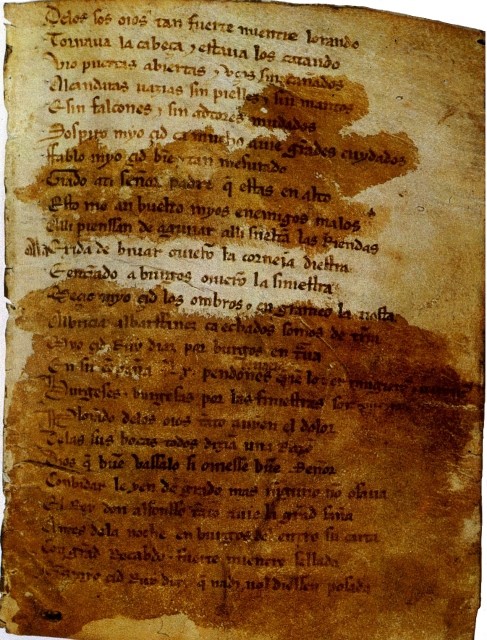 Delos sos oios tan fuerte mientre lorando
Tornaua la cabeça & estaua los catando
Vio puertas abiertas & vços sin cañados
Alcandaras uazias sin pielles & sin mantos
E sin falcones & sin adtores mudados
Sospiro myo çid ca mucho auie grãdes cuydados
Fablo myo çid bien & tan mesurado
Grado ati señor padre q̃ estas en alto
Esto me an buelto myos enemigos malos
Alli pienssan de aguijar alli sueltã las Riendas
Exida de biuar ouierõ la corneia diestra
E entrãdo a burgos ouierõ la siniestra
Meçio myo çid los ombros & en grameo la tiesta
Albricia albarffanez ca echados somos de tr̃ra
Myo çid Ruy diaz por burgos en traua
En su conpaña Lx pendones
Burgeses & burgesas por las finiestras son
Plorando delos oios tãto auyen el dolor
Delas sus bocas todos dizian una Razõ
Dios q̃ buẽ vassalo si ouiesse buẽ Señor
Conbidar le yen de grado mas ninguno nõ osaua
El Rey don alfonsso tãto auie la grãd saña
Antes dela noche en burgos del entro su carta
Con grãd Recabdo & fuerte mientre sellada
Que amyo çid Ruy diaz q̃ nadi nol diessen posada